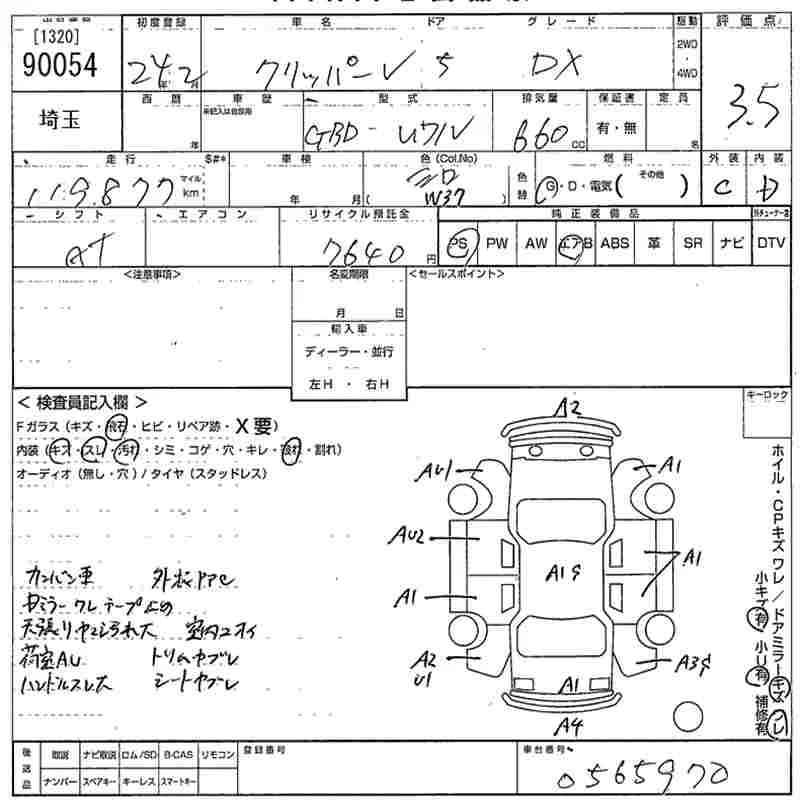 [1320]
90054
埼玉
初度登録
24年2月
車名
クリッパーV
ドア
5
グレード
DX
駆動
2WD
・
4WD
評価点
3.5
西暦
年
車歴
未記入は自家用
型式
GBD-U71V
排気量
660cc
保証書
有・無
定員
名
走行
119,877
マイル
km
S#*
車検
年 月(
色(Col.No)
シロ
W37 )
色替
燃料
G・D・電気( その他 )
外装
C
内装
D
シフト
AT
エアコン
リサイクル預託金
7640円
純正装備品
PS PW AW エアB ABS 革 SR ナビ DTV
<注意事項>
名変期限
月 日
輸入車
ディーラー・並行
左H ・ 右H
<セールスポイント>
< 検査員記入欄 >
Fガラス(キズ・飛石・ヒビ・リペア跡・X要)
内装(キズ・スレ・汚れ・シミ・コゲ・穴・キレ・破れ・割れ)
オーディオ(無し・穴)/タイヤ(スタッドレス)
カンバン車
荷室AU
ハンドルスレ大
トリムヤブレ
シートヤブレ
A2
AU1
A1
AU2
A1
A1
A1
A2
U1
A1
A4
キーロック
ホイル・CPキズワレ/ドアミラーキズワレ
小キズ有 小リ有 補修有
後送品
取説 ナビ取説 ロム/SD B-CAS リモコン
ナンバー スペアキー キーレス スマートキー
登録番号
車台番号
0565970